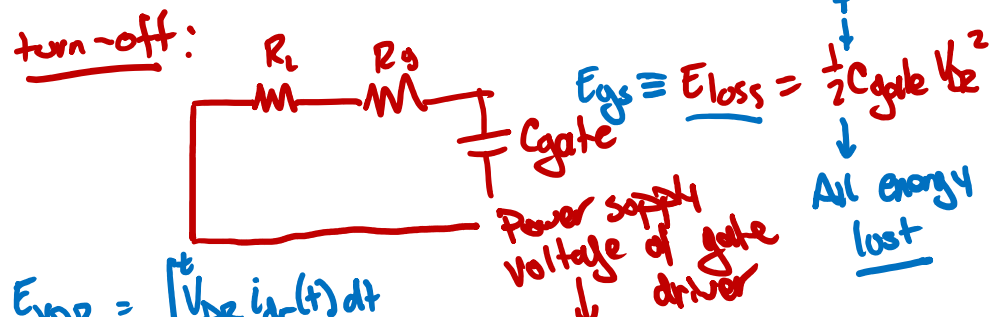 turn-off:
R_L R_g
E_gs ≡ E_loss = 1/2 C_gate V_DR^2
C_gate
All energy
lost
Power supply
voltage of gate
driver
= ∫^t V_DR i_dr(t) dt